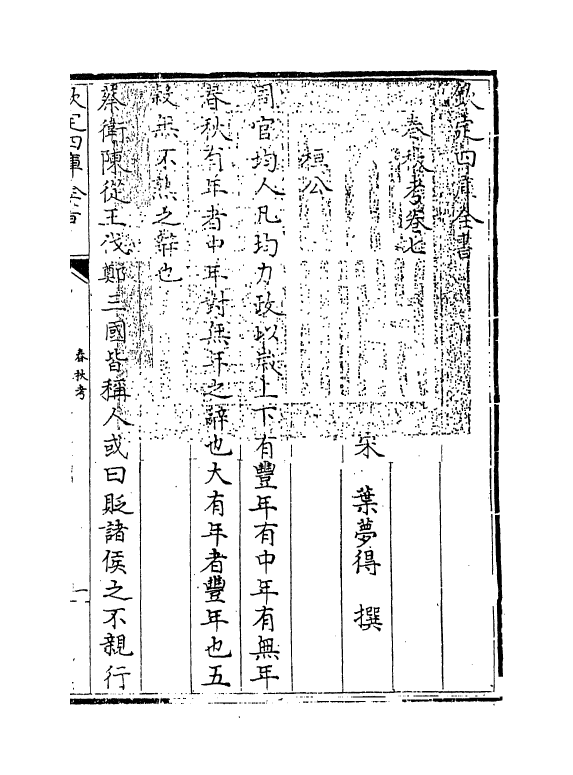 欽定四庫全書
春秋考卷七
宋 葉夢得 撰
桓公
周官均人凡均力政以歲上下有豐年有中年有無年
春秋有年者中年對無年之辭也大有年者豐年也五
穀無不熟之辭也
蔡衛陳從王伐鄭三國皆稱人或曰貶諸侯之不親行
欽定四庫全書
春秋考
一